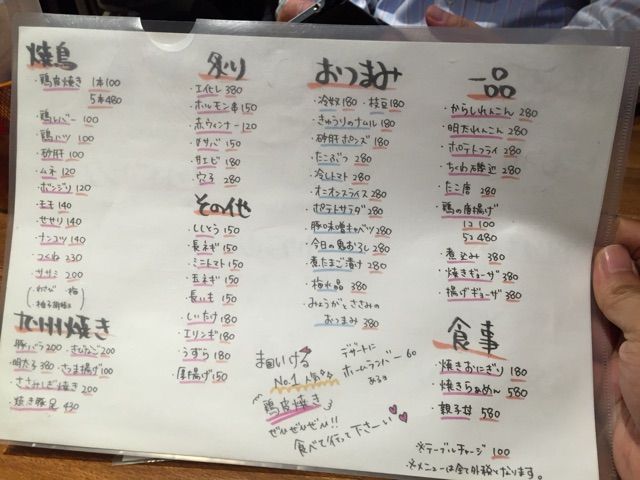 焼鳥
・鶏皮焼き 1本100
5本480
・鶏レバー 100
・鶏ハツ 100
・砂肝 100
・ムネ 120
・ボンジリ 120
・モモ 140
・せせり 140
・ナンコツ 140
・つくね 230
・ササミ 200
(・わさび ・梅
・柚子胡椒)
九州焼き
・豚バラ 200 ・きびなご 200
・明太子 380 ・さつま揚げ 100
・ささみしぎ焼き 200
・焼き豚足 430
炙り
・エイヒレ 380
・ホルモン串 150
・赤ウィンナー 120
・トロサバ 150
・甘エビ 180
・穴子 280
その他
・ししとう 150
・長ネギ 150
・ミニトマト 150
・玉ネギ 150
・長いも 150
・しいたけ 180
・エリンギ 180
・うずら 180
・厚揚げ 150
おつまみ
・冷奴 180 ・枝豆 180
・きゅうりのナムル 180
・砂肝ポンズ 180
・たこぶつ 280
・冷しトマト 280
・オニオンスライス 280
・ポテトサラダ 280
・豚味噌キャベツ 280
・今日の鬼おろし 280
・煮たまご漬け 280
・梅水晶 380
・みょうがとささみの
おつまみ 380
一品
・からしれんこん 280
・明太れんこん 280
・ポテトフライ 280
・ちくわ磯辺 280
・たこ唐 280
・鶏の唐揚げ
1コ 100
5コ 480
・煮込み 380
・焼きギョーザ 380
・揚げギョーザ 380
食事
・焼きおにぎり 180
・焼きらぁめん 580
・親子丼 580
No.1 人気
鶏皮焼き
ぜひぜひぜひ!!
食べて行って下さーい
デザートに
ホームランバー 60
あるョ
※テーブルチャージ 100
※メニューは全て外税となります。